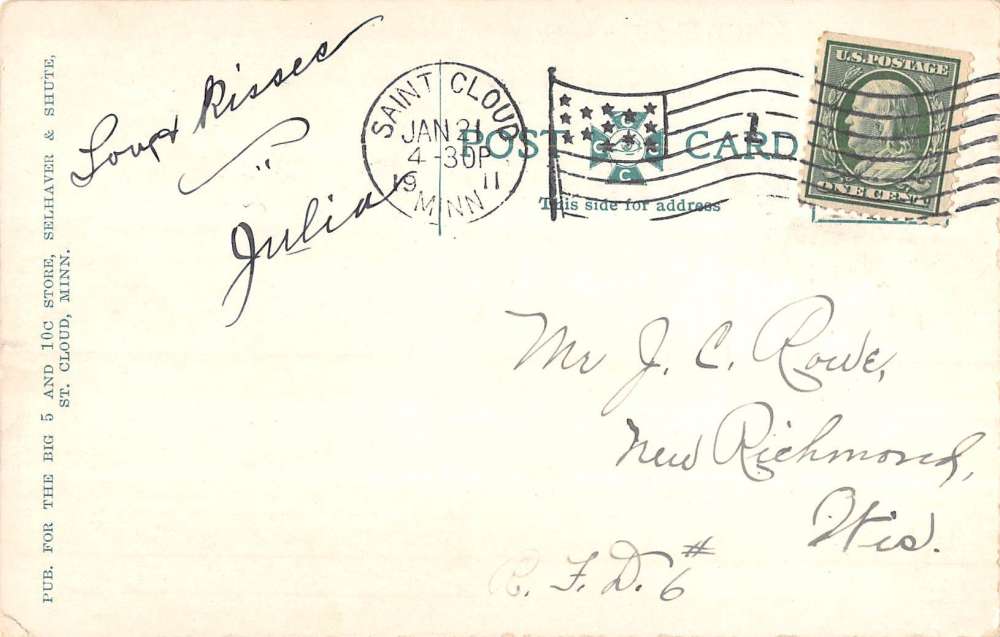 PUB. FOR THE BIG 5 AND 10C STORE, SELHAVER & SHUTE,
ST. CLOUD, MINN.
Love & Kisses
Julia
SAINT CLOUD
JAN 21
4-30P
19 11
MINN
POST CARD
C C C
1
This side for address
U.S. POSTAGE
ONE CENT
Mr J. C. Rowe,
New Richmond,
Wis.
R. F. D. #6